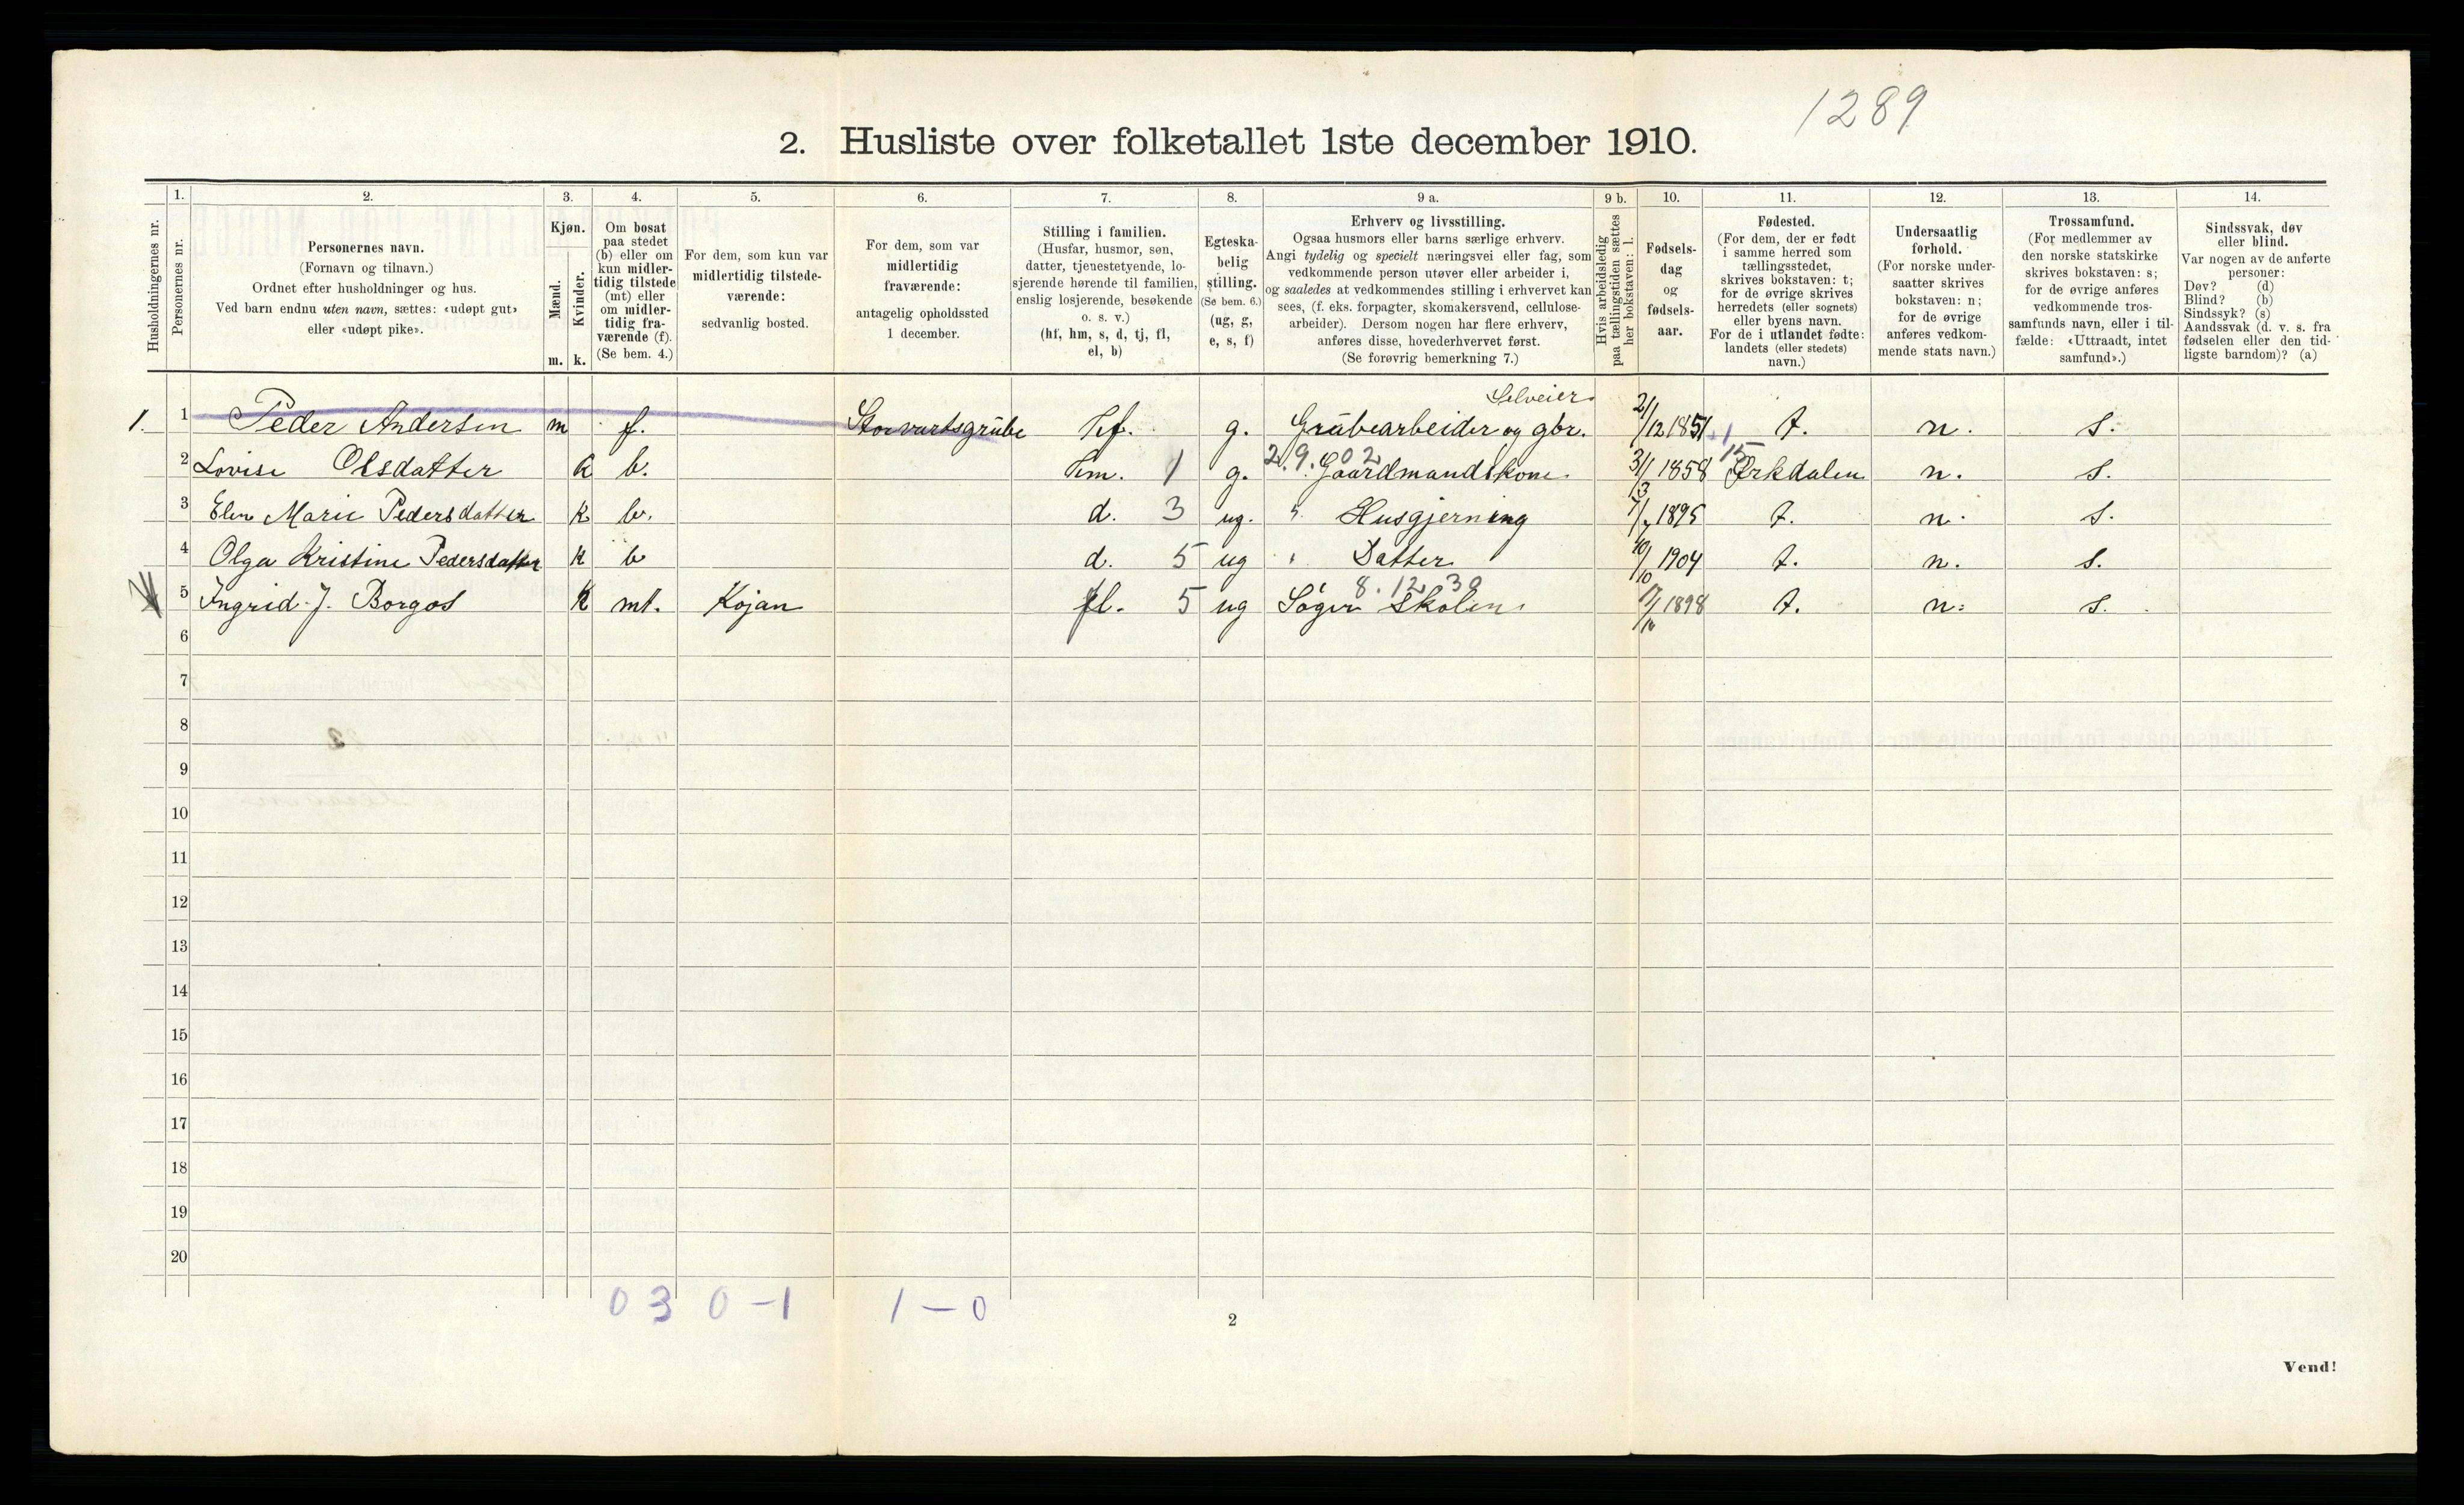 1289
2. Husliste over folketallet 1ste december 1910.
Husholdningernes nr.
1.
Personernes nr.
2.
Personernes navn.
(Fornavn og tilnavn.)
Ordnet efter husholdninger og hus.
Ved barn endnu uten navn, sættes: «udøpt gut»
eller «udøpt pike».
3.
Kjøn.
Mænd.
Kvinder.
m. k.
4.
Om bosat
paa stedet
(b) eller om
kun midler-
tidig tilstede
(mt) eller
om midler-
tidig fra-
værende (f).
(Se bem. 4.)
5.
For dem, som kun var
midlertidig tilstede-
værende:
sedvanlig bosted.
6.
For dem, som var
midlertidig
fraværende:
antagelig opholdssted
1 december.
7.
Stilling i familien.
(Husfar, husmor, søn,
datter, tjenestetyende, lo-
sjerende hørende til familien,
enslig losjerende, besøkende
o. s. v.)
(hf, hm, s, d, tj, fl,
el, b)
8.
Egteska-
belig
stilling.
(Se bem. 6.)
(ug, g,
e, s, f)
9 a.
Erhverv og livsstilling.
Ogsaa husmors eller barns særlige erhverv.
Angi tydelig og specielt næringsvei eller fag, som
vedkommende person utøver eller arbeider i,
og saaledes at vedkommendes stilling i erhvervet kan
sees, (f. eks. forpagter, skomakersvend, cellulose-
arbeider). Dersom nogen har flere erhverv,
anføres disse, hovederhvervet først.
(Se forøvrig bemerkning 7.)
9 b.
Hvis arbeidsledig
paa tællingstiden sættes
her bokstaven: l.
10.
Fødsels-
dag
og
fødsels-
aar.
11.
Fødested.
(For dem, der er født
i samme herred som
tællingsstedet,
skrives bokstaven: t;
for de øvrige skrives
herredets (eller sognets)
eller byens navn.
For de i utlandet fødte:
landets (eller stedets)
navn.)
12.
Undersaatlig
forhold.
(For norske under-
saatter skrives
bokstaven: n;
for de øvrige
anføres vedkom-
mende stats navn.)
13.
Trossamfund.
(For medlemmer av
den norske statskirke
skrives bokstaven: s;
for de øvrige anføres
vedkommende tros-
samfunds navn, eller i til-
fælde: «Uttraadt, intet
samfund».)
14.
Sindssvak, døv
eller blind.
Var nogen av de anførte
personer:
Døv? (d)
Blind? (b)
Sindssyk? (s)
Aandssvak (d. v. s. fra
fødselen eller den tid-
ligste barndom)? (a)
Selveier
1. 1 Peder Andersen m f. Storvartsgrube hf. g. Grubearbeider og gbr. 21/12 1851 t. n. s.
2.9.02 15
2 Lovise Olsdatter k b. hm. 1 g. Gaardmandskone. 1858 Ørkdalen n. s.
3 Elen Marie Pedersdatter k b. d. 3 ug. " Husgjerning 1895 t. n. s.
4 Olga Kristine Pedersdatter k b d. 5 ug " Datter 10/10 1904 t. n. s.
8.12.30
5 Ingrid J. Borgos k mt. Kojan fl. 5 ug Søger Skolen. 1898 t. n. s.
6
7
8
9
10
11
12
13
14
15
16
17
18
19
20
0 3 0 - 1 1 - 0
2
Vend!